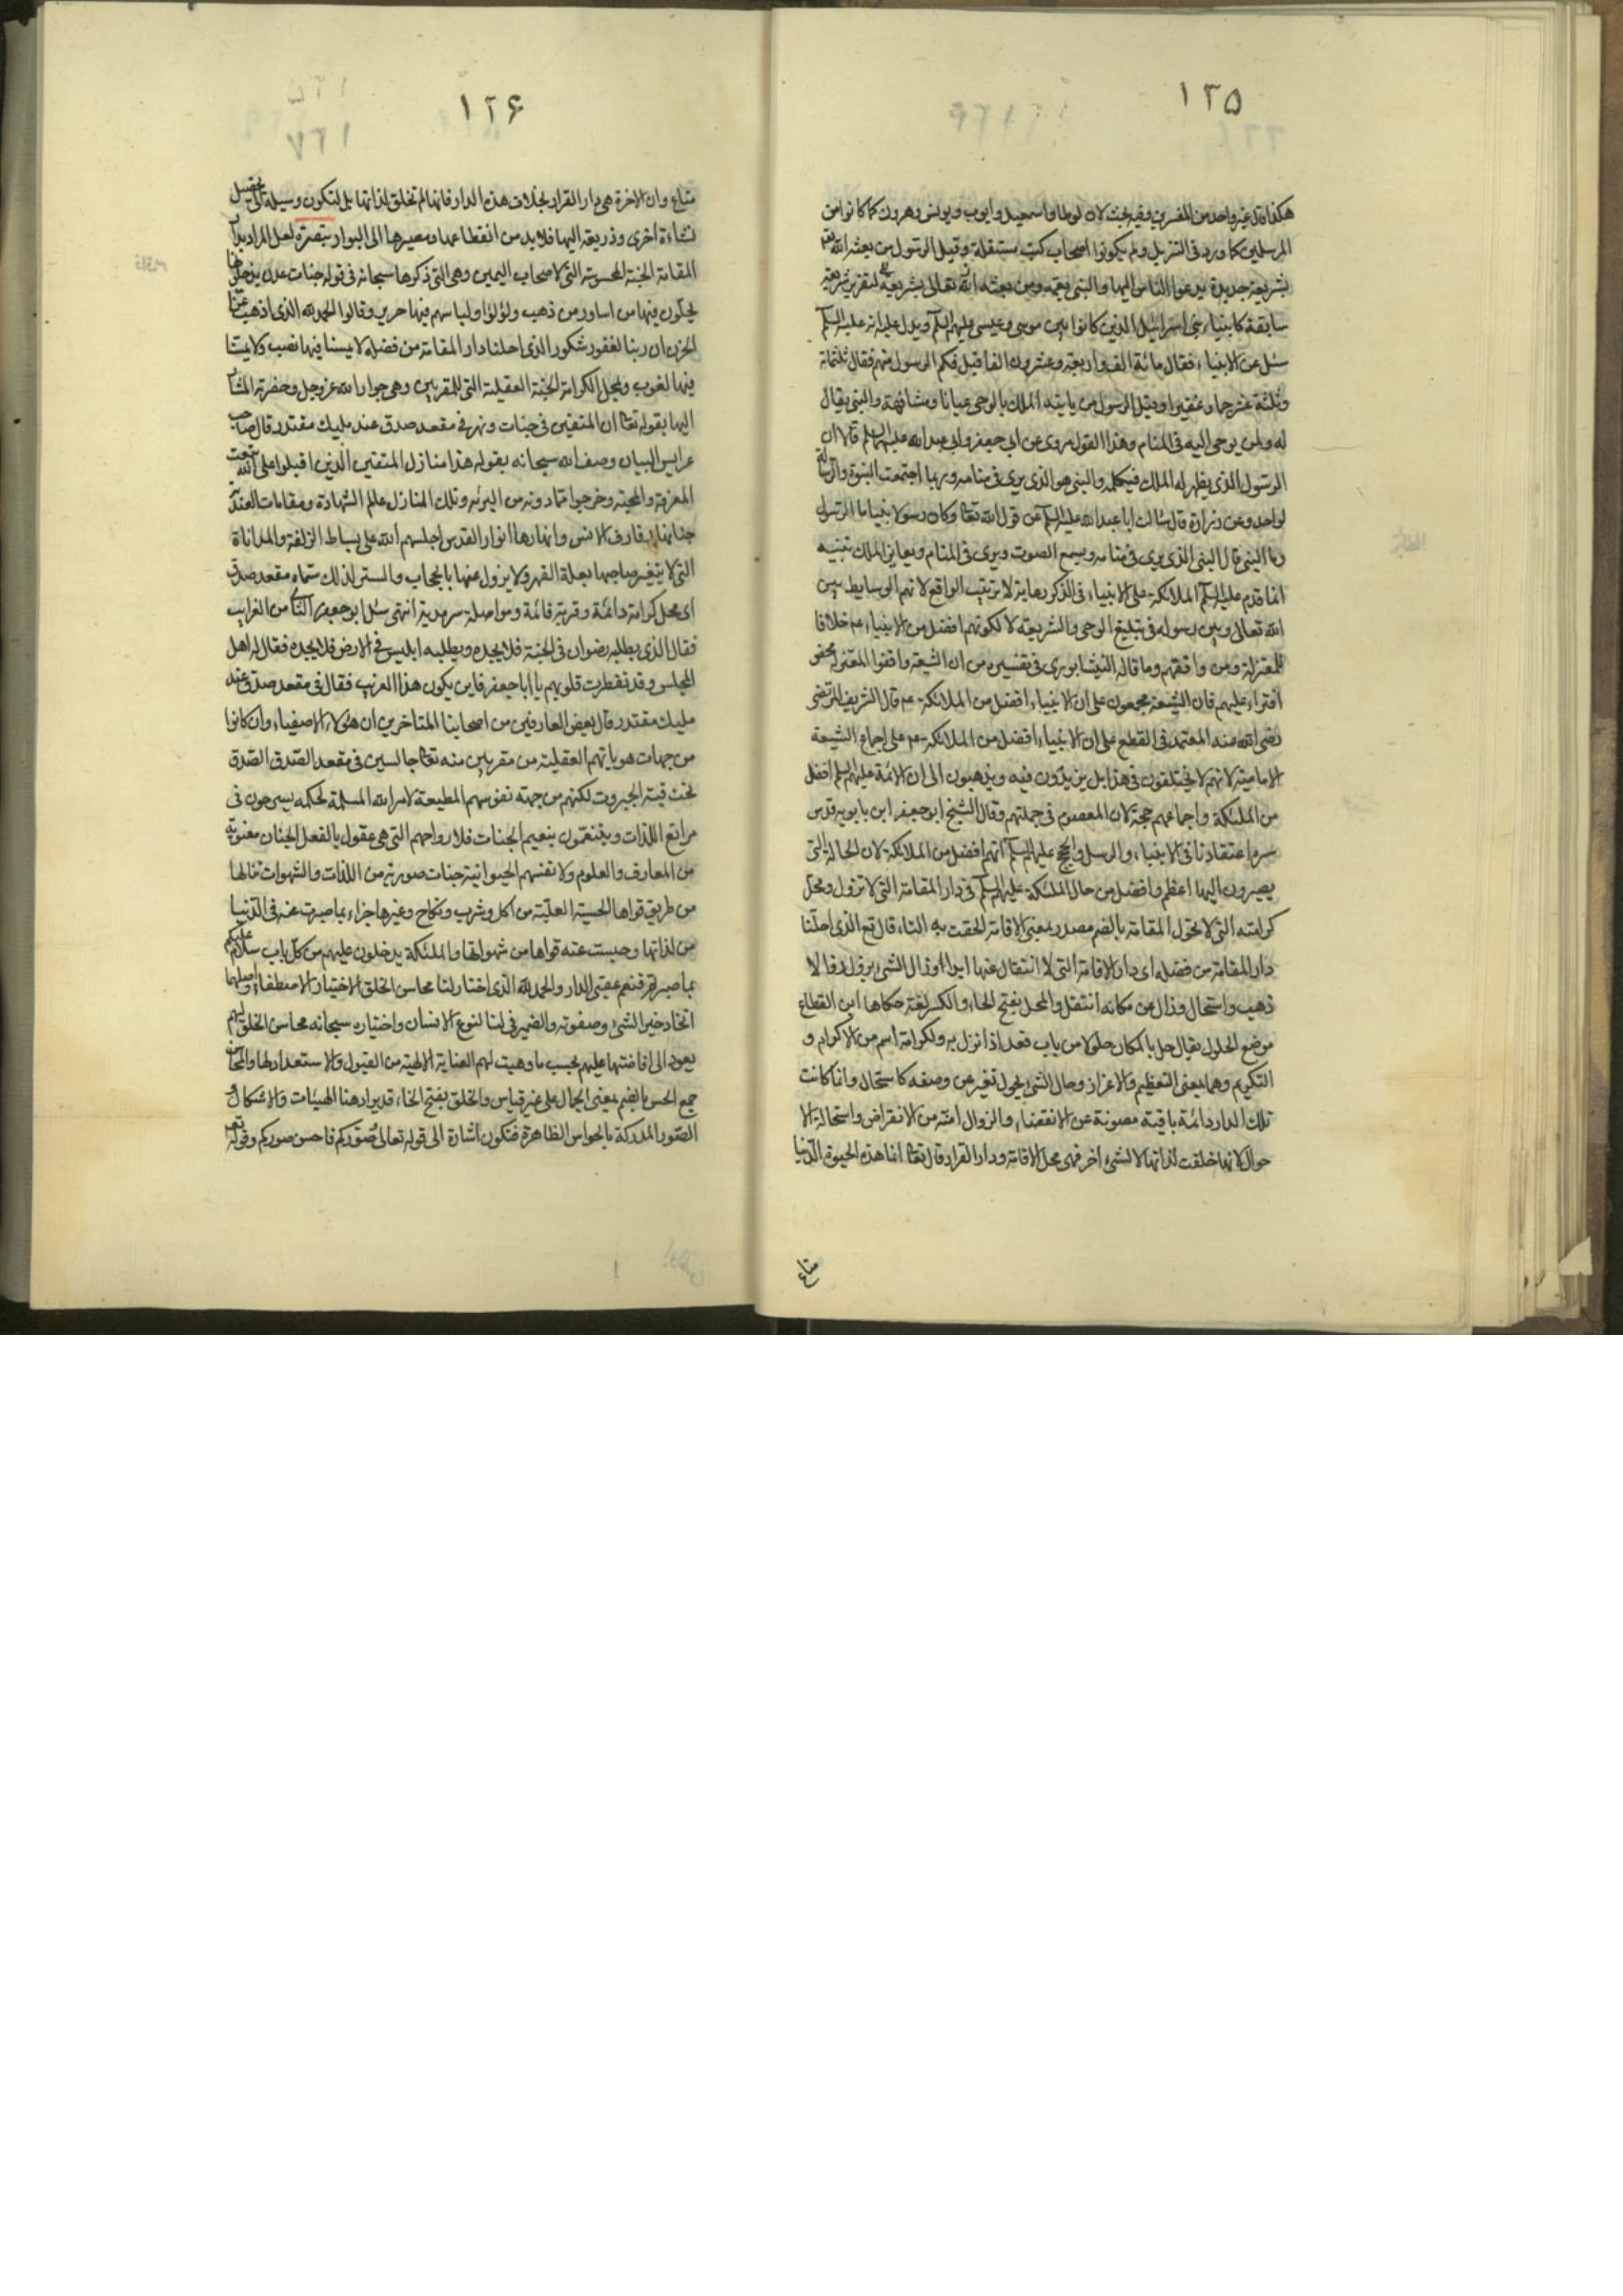 ١٢٥
هكذا قال غير واحد من المفسرين وفيه بحث لان لوطا واسمعيل وايوب ويونس وهرون كما كانوا من
المرسلين كما ورد فى التنزيل ولم يكونوا اصحاب كتب مستقلة وقيل الرسول من بعثه الله تعـ
بشريعة جديدة يدعوا الناس اليها والنبى يعمه ومن بعثه الله تعالى لتقرير شريعة
سابقة كانبياء بنى اسرائيل الذين كانوا بين موسى وعيسى عليهم السلم ويدل عليه انه عليه السلم
سئل عن الانبياء فقال مائة الف واربعة وعشرون الفا قيل فكم الرسول منهم فقال ثلثمائة
وثلثة عشر جما وغفيرا وقيل الرسول من ياتيه الملك بالوحى عيانا ومشافهة والنبى يقال
له ولمن يوحى اليه فى المنام وهذا القول مروى عن ابى جعفر وابى عبد الله عليهما السلم قالا ان
الرسول الذى يظهر له الملك فيكلمه والنبى هو الذى يرى فى منامه وربما اجتمعت النبوة والرسالة
لواحد وعن زرارة قال سالت ابا عبد الله عليه السلم عن قول الله تعـ وكان رسولا نبيا ما الرسول
وما النبى قال النبى الذى يرى فى منامه ويسمع الصوت ويرى فى المنام ويعاين الملك تنبيه
انما قدم عليه السلم الملائكة على الانبياء فى الذكر رعاية لا ترتيب الواقع لانهم الوسايط بين
الله تعالى وبين رسوله فى تبليغ الوحى والشريعة لا لكونهم افضل من الانبياء عم خلافا
للمعتزلة ومن وافقهم وما قاله النيشابورى فى تفسيره من ان الشيعة وافقوا المعتزلة محض
افتراء عليهم فان الشيعة مجمعون على ان الانبياء افضل من الملائكة عم قال الشريف المرتضى
رضى الله عنه المعتمد فى القطع على ان الانبياء افضل من الملائكة عم على اجماع الشيعة
الامامية لانهم لا يختلفون فى هذا بل يزيدون فيه ويذهبون الى ان الائمة عليهم السلم افضل
من الملئكة واجماعهم حجة لان المعصوم فى جملتهم وقال الشيخ ابو جعفر ابن بابويه قدس
سره اعتقادنا فى الانبياء والرسل والحجج عليهم السلم انهم افضل من الملائكة لان الحالة التى
يصيرون اليها اعظم وافضل من حال الملئكة عليهم السلم فى دار المقامة التى لا تزول ومحل
كرامته التى لا تحول المقامة بالضم مصدر بمعنى الاقامة الحقت به التاء قال تع الذى احلنا
دار المقامة من فضله اى دار الاقامة التى لا انتقال عنها ابدا وزال الشئ يزول زوالا
ذهب واستحال وزال عن مكانه انتقل والمحل بفتح الحاء والكسر لغة حكاها ابن القطاع
موضع الحلول يقال حل بالمكان حلولا من باب قعد اذا نزل به والكرامة اسم من الاكرام و
التكريم وهما بمعنى التعظيم والاعزاز وحال الشئ يحول تغير عن وصفه كاستحال وانما كانت
تلك الدار دائمة باقية مصونة عن الانقضاء والزوال امنة من الانقراض واستحالة الا
حوال لانها خلقت لذاتها لا لشئ اخر فهى محل الاقامة ودار القرار قال تعـ انما هذه الحيوة الدنيا
متاع
١٢٦
١٢٧
متاع وان الاخرة هى دار القرار بخلاف هذه الدار فانها لم تخلق لذاتها بل لتكون وسيلة الى تحصيل
نشاءة اخرى وذريعة اليها فلا بد من انقطاعها ومصيرها الى البوار تبصرة لعل المراد بدار
المقامة الجنة المحسوسة التى لاصحاب اليمين وهى التى ذكرها سبحانه فى قوله جنات عدن يدخلونها
يحلون فيها من اساور من ذهب ولؤلؤا ولباسهم فيها حرير وقالوا الحمد لله الذى اذهب عنا
الحزن ان ربنا لغفور شكور الذى احلنا دار المقامة من فضله لا يمسنا فيها نصب ولا يمسنا
فيها لغوب ومحل الكرامة الجنة العقلية التى للمقربين وهى جوار الله عز وجل وحضرته المشار
اليها بقوله تعـ ان المتقين فى جنات ونهر فى مقعد صدق عند مليك مقتدر قال صاحب
عرايس البيان وصف الله سبحانه بقوله هذا منازل المتقين الذين اقبلوا على الله بنعت
المعرفة والمحبة وخرجوا مما دونه من البرية وتلك المنازل عالم الشهادة ومقامات العندية
جنانها رفارف الانس وانهارها انوار القدس اجلسهم الله على بساط الزلفة والمداناة
التى لا يتغير صاحبها بعلة القهر ولا يزول عنها بالحجاب والستر لذلك سماه مقعد صدق
اى محل كرامة دائمة وقربة قائمة ومواصلة سرمدية انتهى سئل ابو جعفر الثانى من الغرايب
فقال الذى يطلبه رضوان فى الجنة فلا يجده ويطلبه ابليس فى الارض فلا يجده فقال له اهل
المجلس وقد تفطرت قلوبهم يا ابا جعفر فاين يكون هذا الغريب فقال فى مقعد صدق عند
مليك مقتدر قال بعض العارفين من اصحابنا المتاخرين ان هؤلاء الاصفياء وان كانوا
من جهات هوياتهم العقلية من مقربين منه تعـ جالسين فى مقعد الصدق الصدق
تحت قبة الجبروت لكنهم من جهة نفوسهم المطيعة لامر الله المسلمة لحكمه يسرحون فى
مراتع اللذات ويتنعمون بنعيم الجنات فلارواحهم التى هى عقول بالفعل الجنان معنوية
من المعارف والعلوم ولانفسهم الحيوانية جنات صورية من اللذات والشهوات تنالها
من طريق قواها الحسية العلية من اكل وشرب ونكاح وغيرها جزاء بما صبرت عنه فى الدنيا
من لذاتها وحبست عنه قواها من شهواتها والملئكة يدخلون عليهم من كل باب سلام عليكم
بما صبرتم فنعم عقبى الدار والحمد لله الذى اختار لنا محاسن الخلق الاختيار الاصطفاء واصلهما
اتخاذ خير الشئ وصفوته والضمير فى لنا لنوع الانسان واختياره سبحانه محاسن الخلق لهم
يعود الى افاضتها عليهم بحسب ما وهبت لهم العناية الالهية من القبول والاستعداد لها والمحاسن
جمع الحسن بالضم بمعنى الجمال على غير قياس والخلق بفتح الخاء قد يراد هنا الهيئات والاشكال و
الصور المدركة بالحواس الظاهرة فتكون اشارة الى قوله تعالى صوركم فاحسن صوركم وقوله تعـ